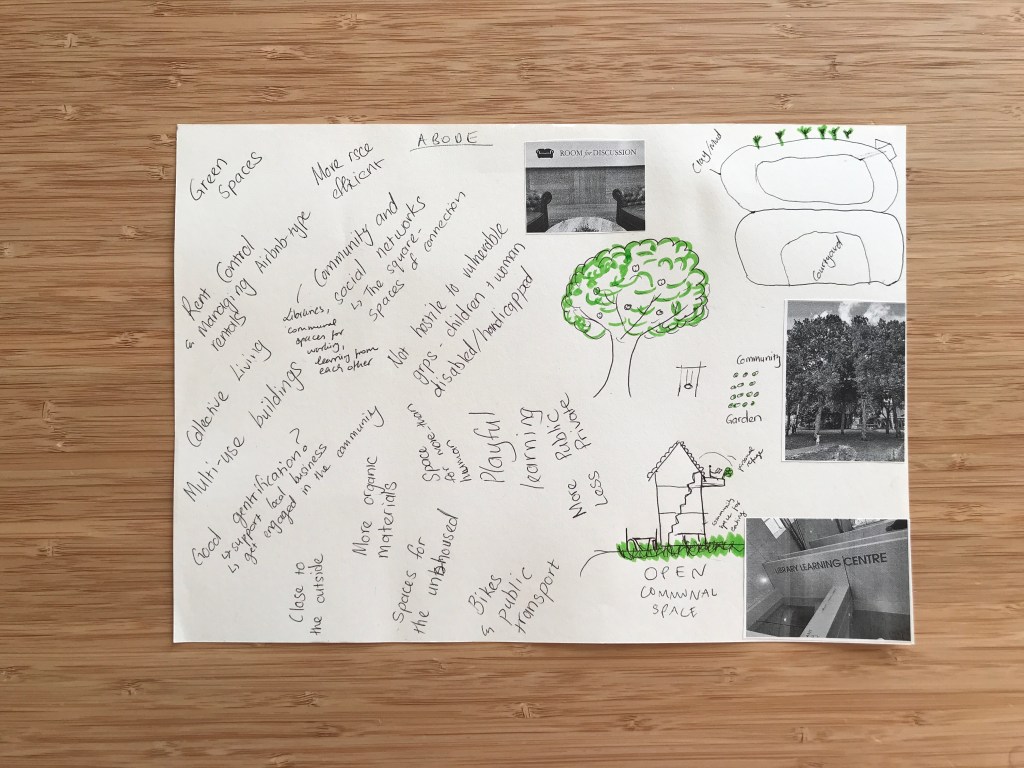 ABODE
Green
Spaces
More rsce
efficient
Rent Control
& managing Airbnb-type
rentals
Community and
social networks
↳ The square -
spaces of connection
Libraries,
communal
spaces for
working,
learning from
each other
Not hostile to vulnerable
grps - children + woman
disabled/handicapped
Collective Living
Multi-use buildings
Good gentrification?
↳ support local business
↳ get engaged in the community
More organic
materials
Space
for more than
human
Playful
learning
More Public
Less Private
Close to
the outside
Spaces for
the unhoused
Bikes
& Public
transport
ROOM for DISCUSSION
Courtyard
Community
Garden
OPEN
COMMUNAL
SPACE
LIBRARY LEARNING CENTRE